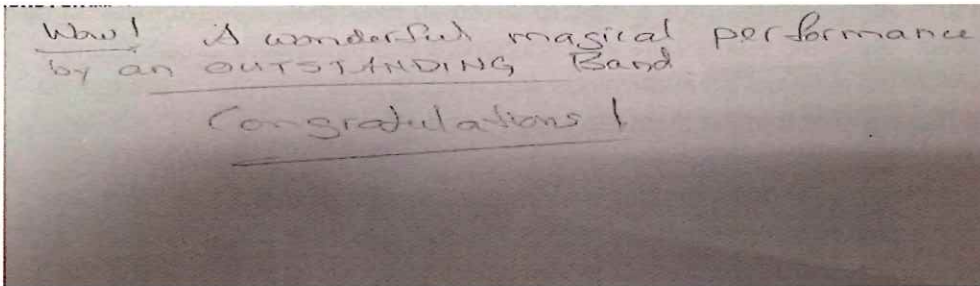 Wow! A wonderful magical performance
by an OUTSTANDING Band
Congratulations!